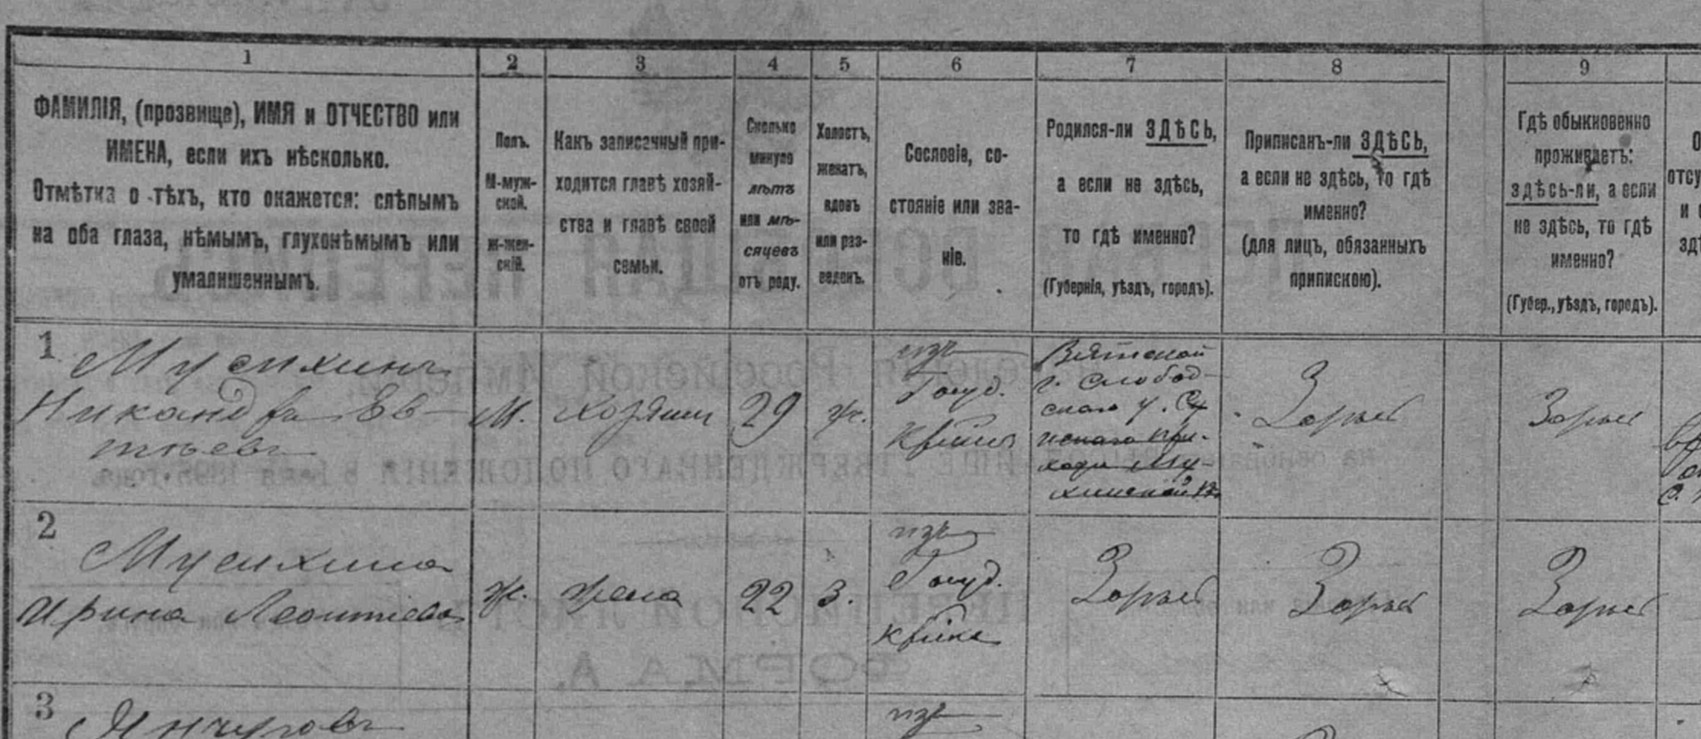 1
2
3
4
5
6
7
8
9
ФАМИЛІЯ, (прозвище), ИМЯ и ОТЧЕСТВО или
ИМЕНА, если ихъ нѣсколько.
Отмѣтка о тѣхъ, кто окажется: слѣпымъ
на оба глаза, нѣмымъ, глухонѣмымъ или
умалишеннымъ.
Полъ.
М-муж-
ской.
ж-жен-
скій.
Какъ записанный при-
ходится главѣ хозяй-
ства и главѣ своей
семьи.
Сколько
минуло
лѣтъ
или мѣ-
сяцевъ
отъ роду.
Холостъ,
женатъ,
вдовъ
или раз-
веденъ.
Сословіе, со-
стояніе или зва-
ніе.
Родился-ли ЗДѢСЬ,
а если не здѣсь,
то гдѣ именно?
(Губернія, уѣздъ, городъ).
Приписанъ-ли ЗДѢСЬ,
а если не здѣсь, то гдѣ
именно?
(для лицъ, обязанныхъ
припискою).
Гдѣ обыкновенно
проживаетъ:
здѣсь-ли, а если
не здѣсь, то гдѣ
именно?
(Губер., уѣздъ, городъ).
1
Мусихинъ
Никандра Ев-
тѣевъ
М.
хозяинъ
29
ж.
изъ
Госуд.
Вятской
г. Слобод-
скаго у.
Здѣсь
Здѣсь
2
Мусихина
Ирина Леонтьева
ж.
жена
22
З.
изъ
Госуд.
Здѣсь
Здѣсь
Здѣсь
3
изъ